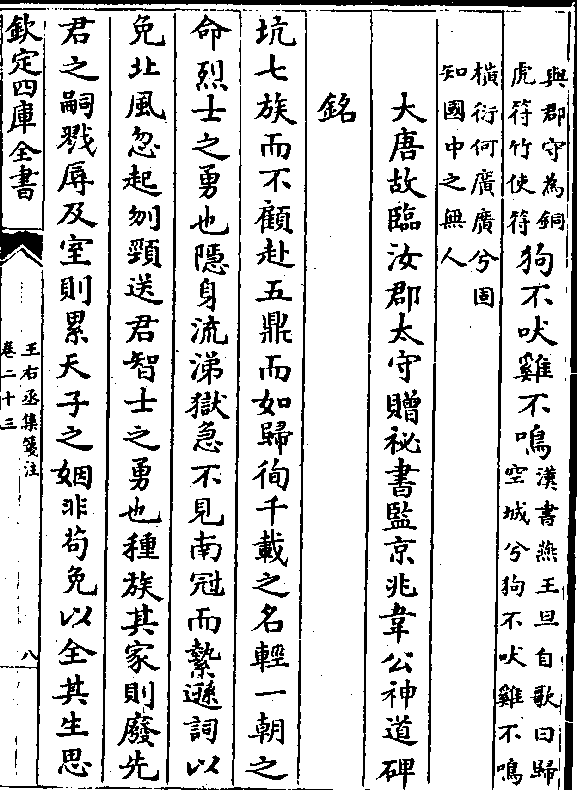 與郡守為銅
虎符竹使符
狗不吠雞不鳴
漢書燕王旦自歌曰歸
空城兮狗不吠雞不鳴
橫術何廣廣兮固
知國中之無人
大唐故臨汝郡太守贈祕書監京兆韋公神道碑
銘
坑七族而不顧赴五鼎而如歸徇千載之名輕一朝之
命烈士之勇也隱身流涕獄急不見南冠而縶遜詞以
免北風忽起刎頸送君智士之勇也種族其家則廢先
君之嗣戮辱及室則累天子之姻非苟免以全其生思
欽定四庫全書
王右丞集箋注
卷二十三
八